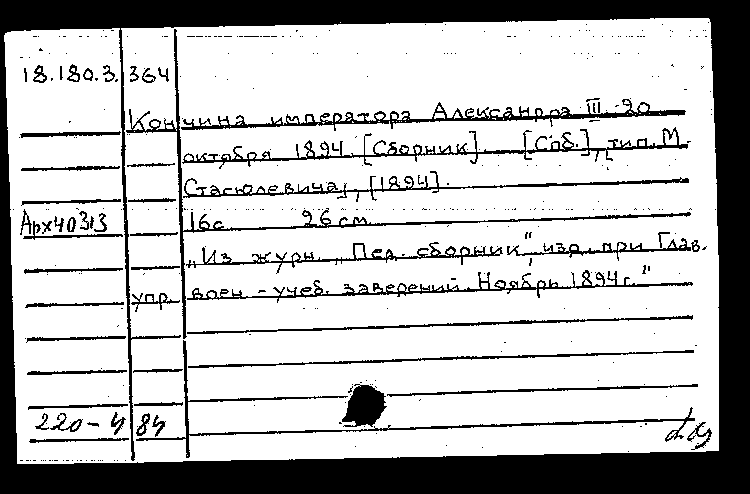 18.180.3. 364
Кончина императора Александра III 20
октября 1894. [Сборник]. [Спб.], тип. М.
Стасюлевича, [1894].
Арх40313 16с 26 см
„Из журн. „Пед. сборник", изд. при Глав.
упр. воен-учеб. заведений. Ноябрь 1894г."
220-4 84